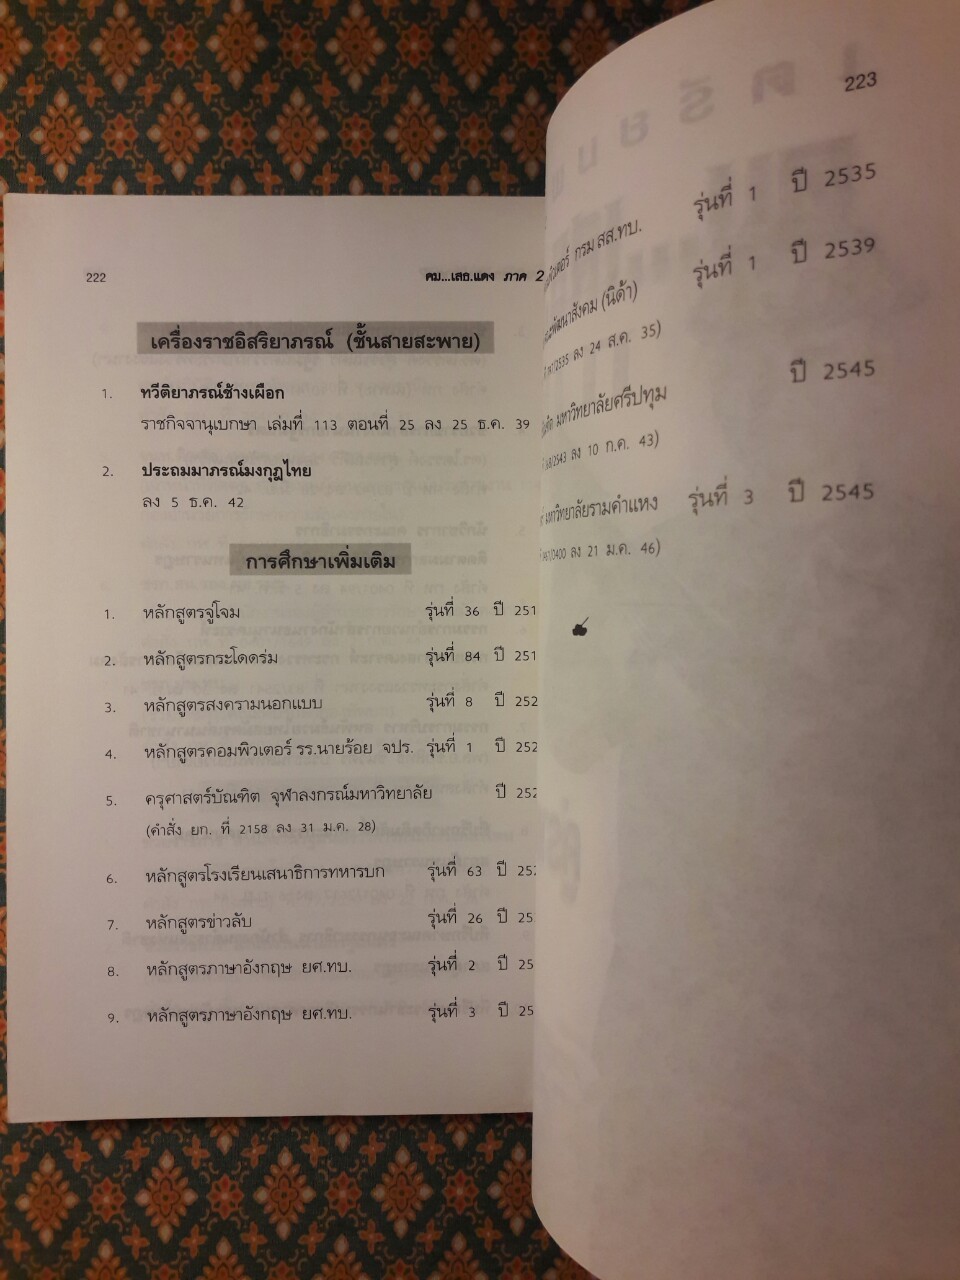 222
คม...เสธ.แดง ภาค 2
เครื่องราชอิสริยาภรณ์ (ชั้นสายสะพาย)
1. ทวีติยาภรณ์ช้างเผือก
ราชกิจจานุเบกษา เล่มที่ 113 ตอนที่ 25 ลง 25 ธ.ค. 39
2. ประถมมาภรณ์มงกุฎไทย
ลง 5 ธ.ค. 42
การศึกษาเพิ่มเติม
1. หลักสูตรจู่โจม รุ่นที่ 36 ปี 251
2. หลักสูตรกระโดดร่ม รุ่นที่ 84 ปี 251
3. หลักสูตรสงครามนอกแบบ รุ่นที่ 8 ปี 252
4. หลักสูตรคอมพิวเตอร์ รร.นายร้อย จปร. รุ่นที่ 1 ปี 252
5. ครุศาสตร์บัณฑิต จุฬาลงกรณ์มหาวิทยาลัย ปี 252
(คำสั่ง ยก. ที่ 2158 ลง 31 ม.ค. 28)
6. หลักสูตรโรงเรียนเสนาธิการทหารบก รุ่นที่ 63 ปี 252
7. หลักสูตรข่าวลับ รุ่นที่ 26 ปี 25
8. หลักสูตรภาษาอังกฤษ ยศ.ทบ. รุ่นที่ 2 ปี 25
9. หลักสูตรภาษาอังกฤษ ยศ.ทบ. รุ่นที่ 3 ปี 25
223
กรม สส.ทบ. รุ่นที่ 1 ปี 2535
พัฒนาสังคม (นิด้า) รุ่นที่ 1 ปี 2539
/2535 ลง 24 ส.ค. 35)
มหาวิทยาลัยศรีปทุม ปี 2545
/2543 ลง 10 ก.ค. 43)
มหาวิทยาลัยรามคำแหง รุ่นที่ 3 ปี 2545
ลง 21 ม.ค. 46)